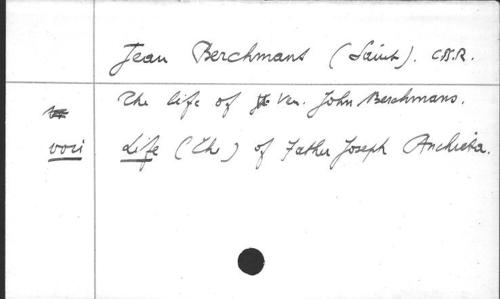 Jean Berchmans (Saint).
The life of Ven. John Berchmans.
voir Life (The) of Father Joseph Anchieta.